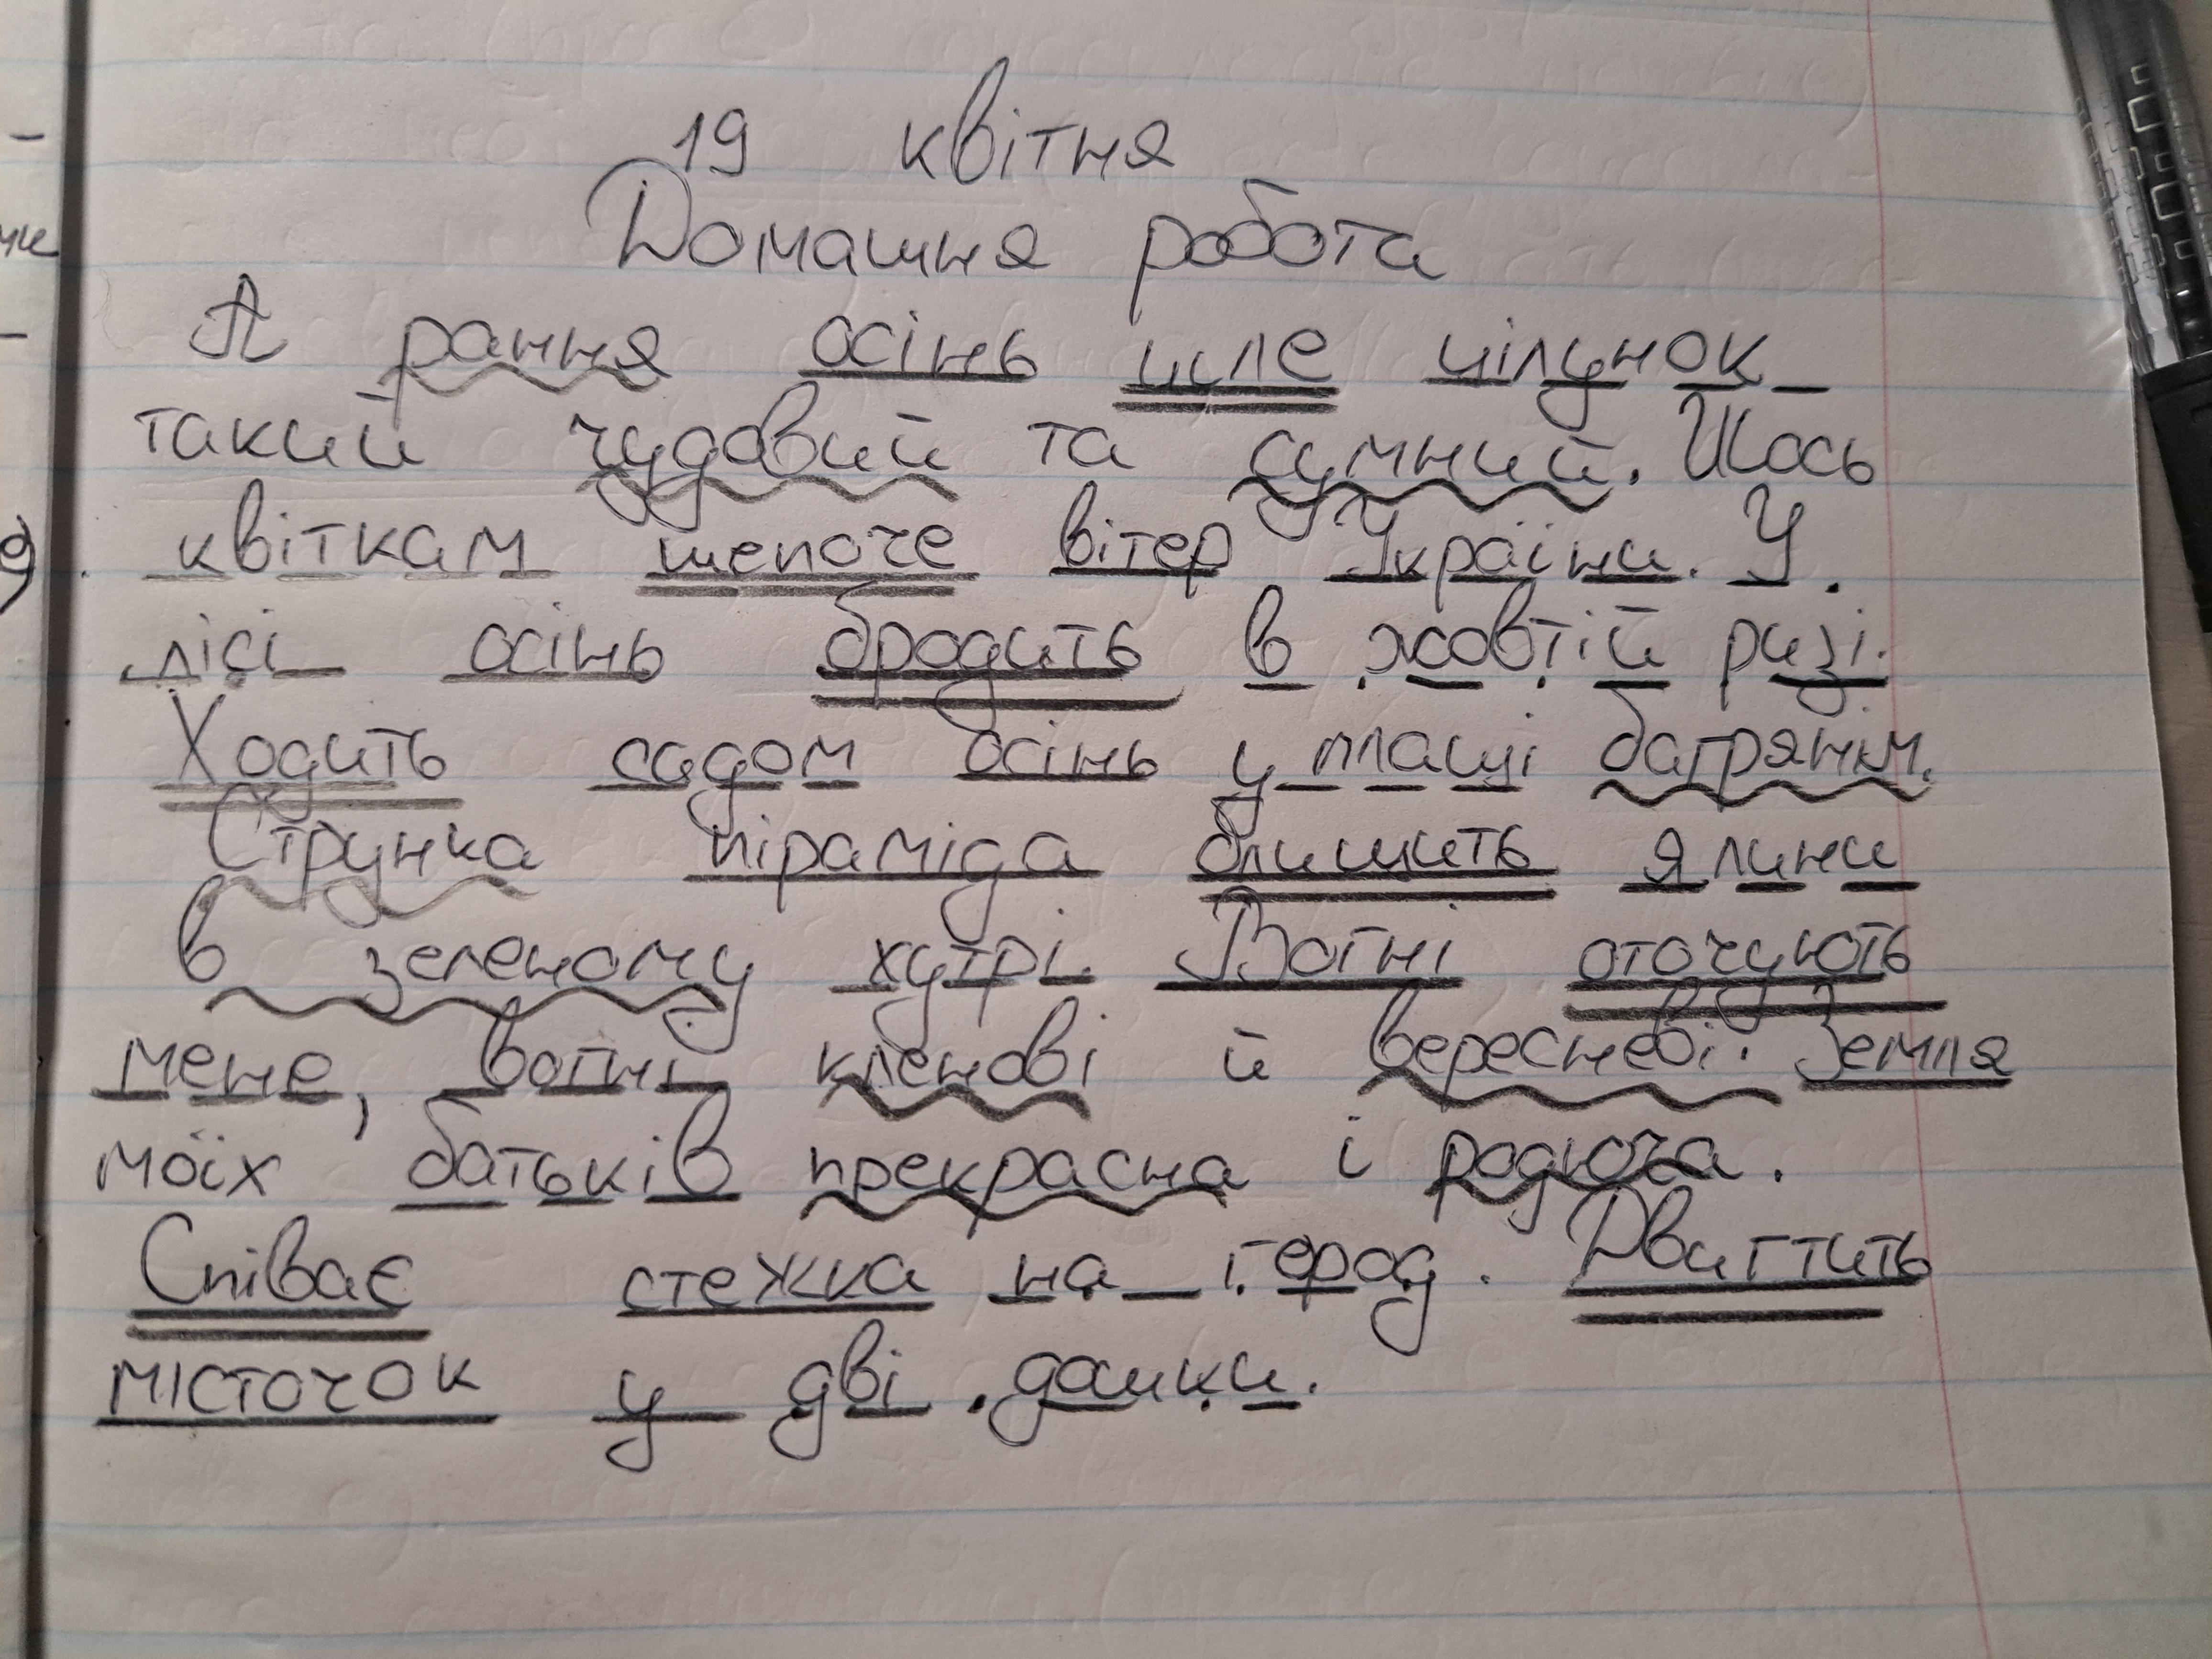 19 квітня
Домашня робота
А рання осінь шле цілунок
такий чудовий та сумний. Щось
квіткам шепоче вітер України. У
лісі осінь бродить в жовтій ризі.
Ходить садом осінь у плащі багрянім.
Струнка піраміда блищить ялини
в зеленому хутрі. Вогні оточують
мене, вогні кленові й вересневі. Земля
моїх батьків прекрасна і родюча.
Співає стежка на город. Двигтить
місточок у дві дошки.